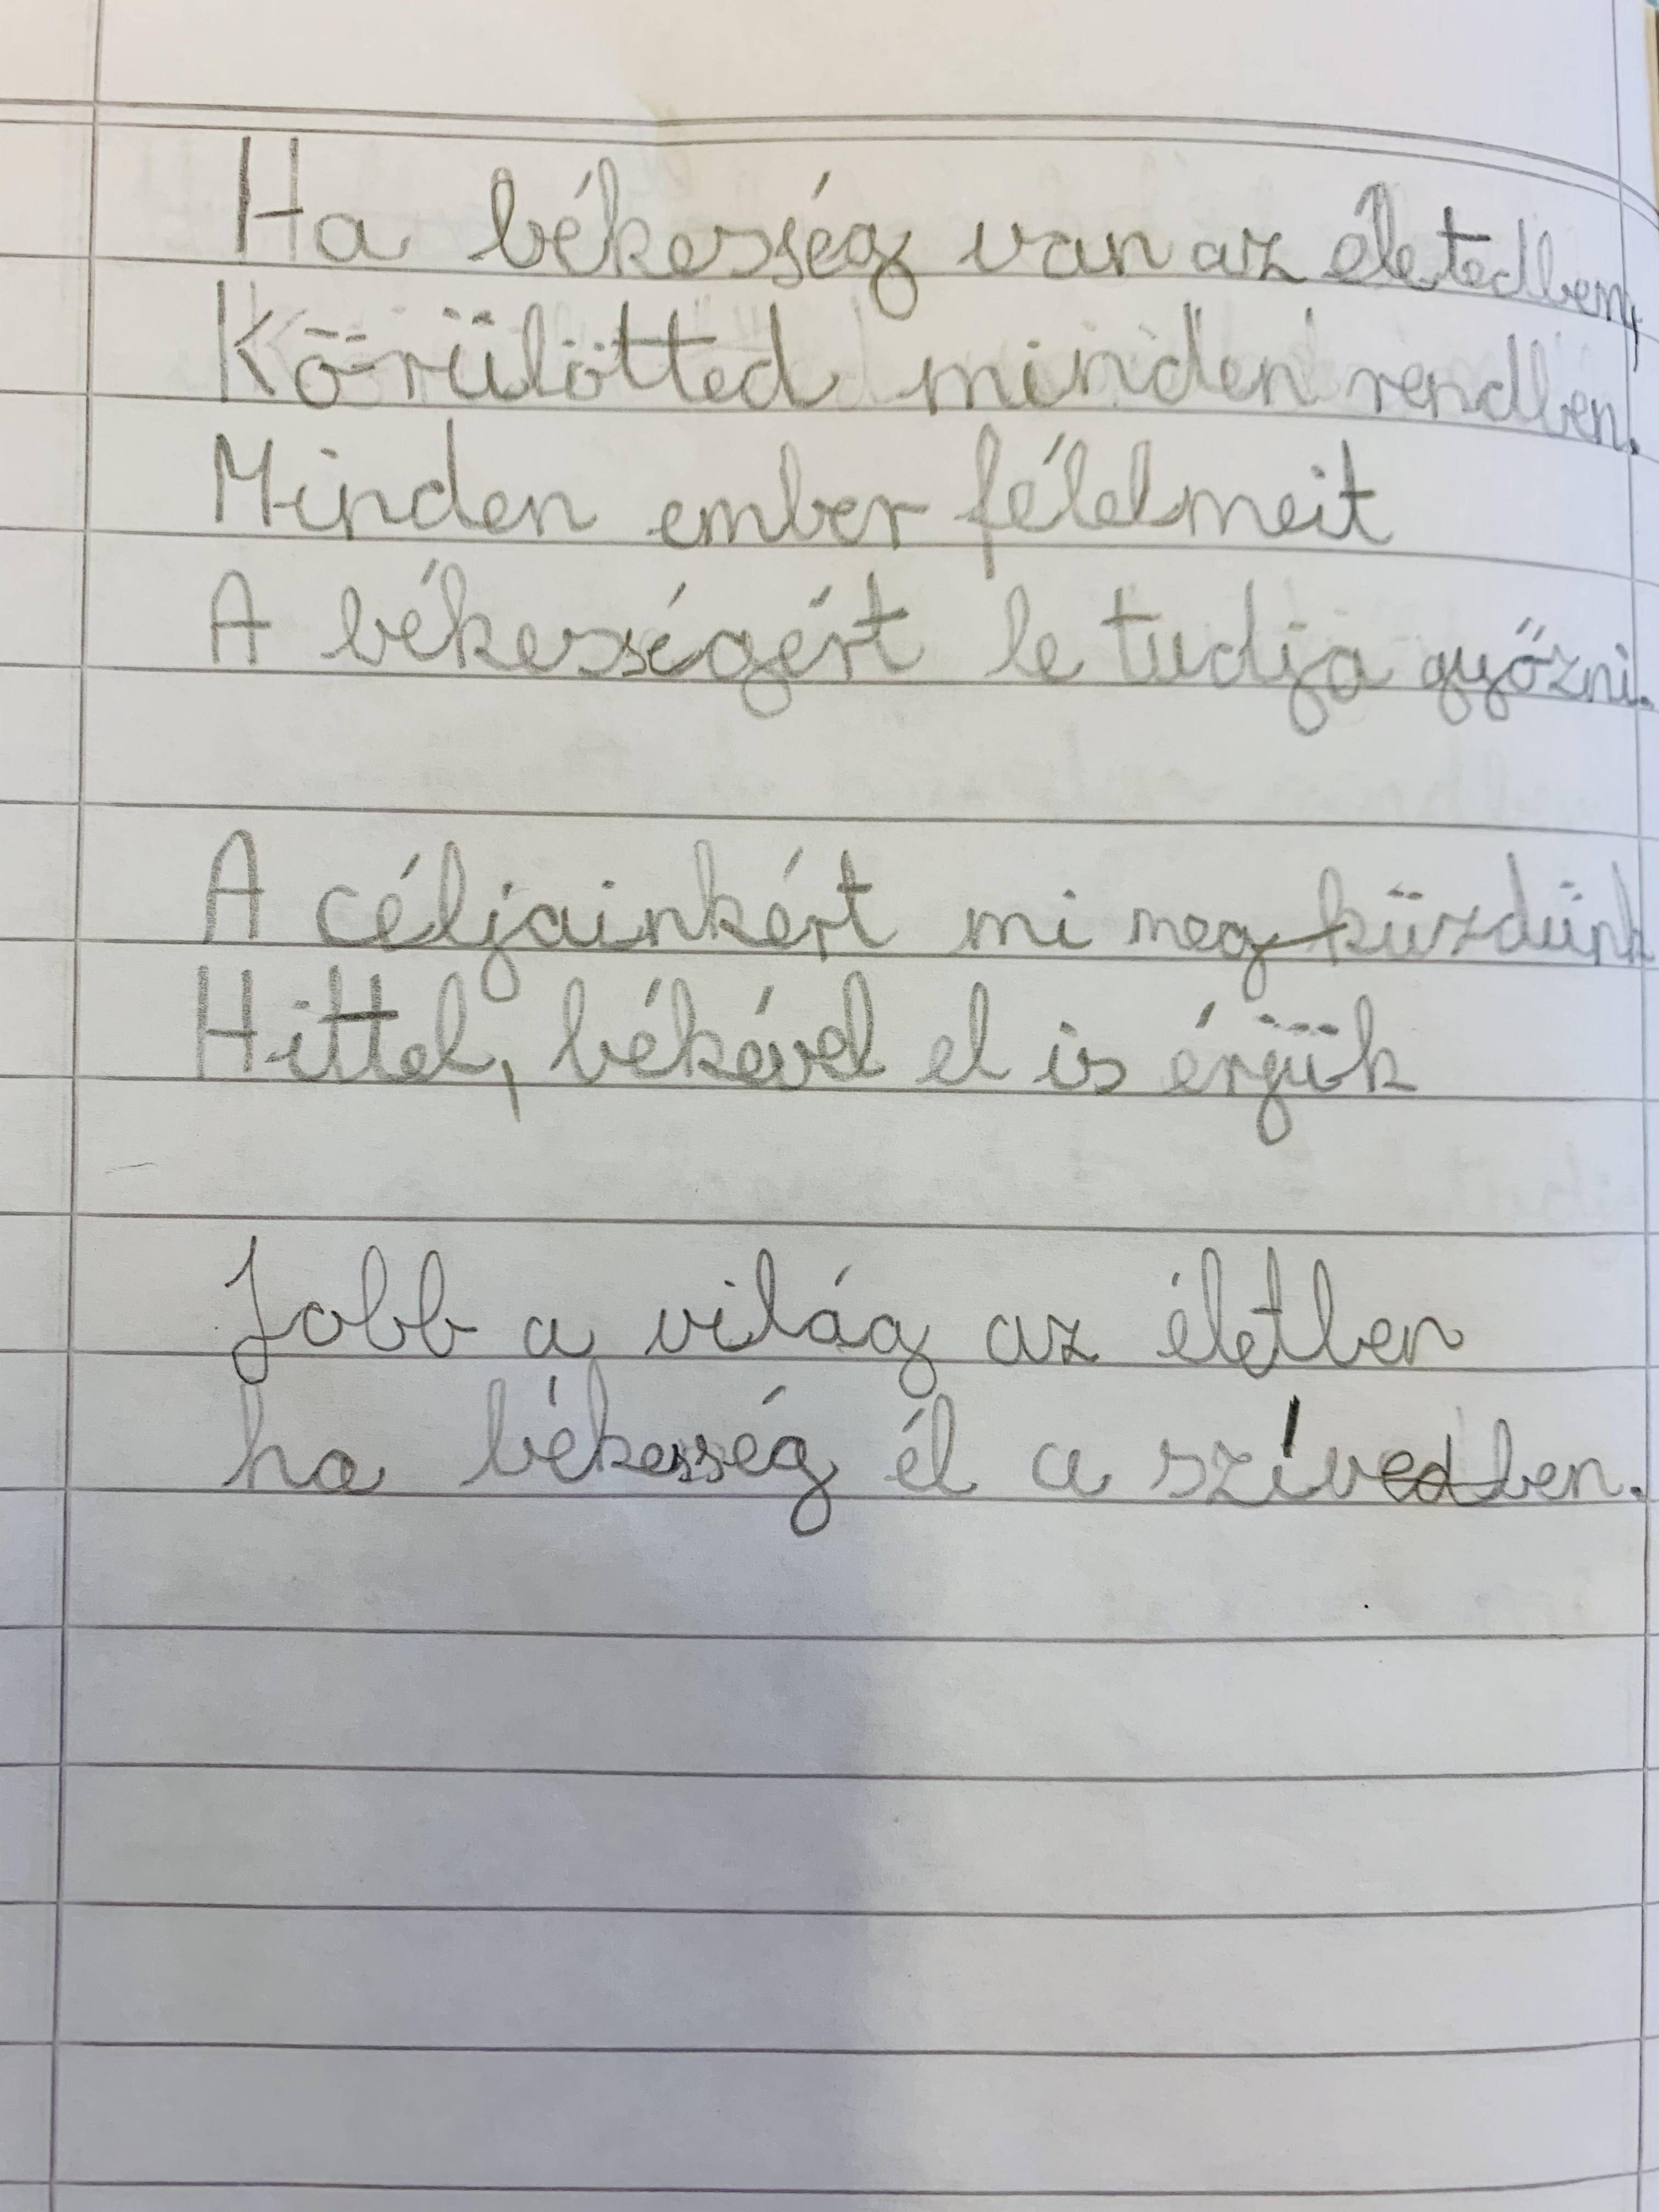 Ha békesség van az életedben,
Körülötted minden rendben.
Minden ember félelmeit
A békességért le tudja győzni.
A céljainkért mi megküzdünk
Hittel, békével el is érjük
Jobb a világ az életben
ha békesség él a szívedben.